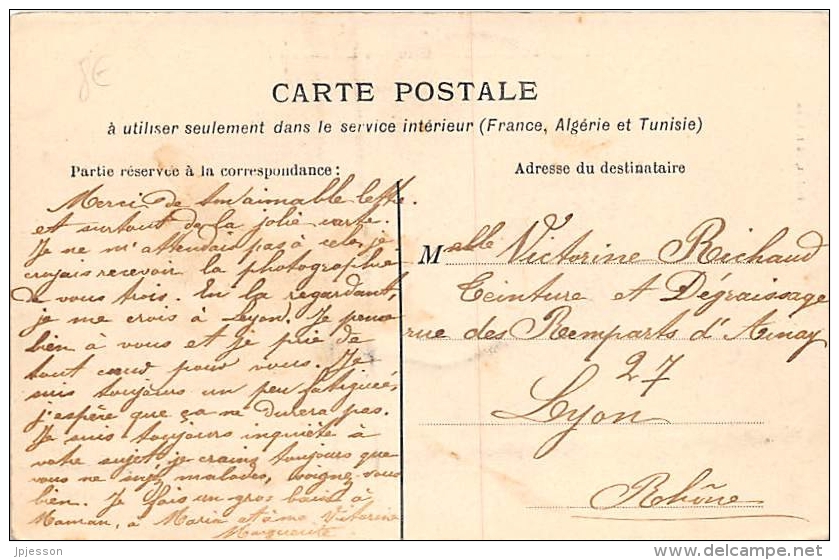 8€
CARTE POSTALE
à utiliser seulement dans le service intérieur (France, Algérie et Tunisie)
Partie réservée à la correspondance:
Adresse du destinataire
Merci de ton aimable lettre.
et surtout de la jolie carte.
Je ne m'attendais pas à cela, je
croyais recevoir la photographie
de vous trois. En la regardant,
je me crois à Lyon. Je pense
bien à vous et je prie de
tout cœur pour vous. Je
suis toujours un peu fatiguée,
j'espère que ça ne durera pas.
Je suis toujours inquiète à
votre sujet, je crains toujours que
vous ne malades, soignez-vous
bien. Je fais un gros baiser à
Maman, à Maria et à ma Victorine
Marguerite
Melle Victorine Richaud
Teinture et Dégraissage
rue des Remparts d'Ainay
27
Lyon
Rhône
jpjesson
www.delcampe.net